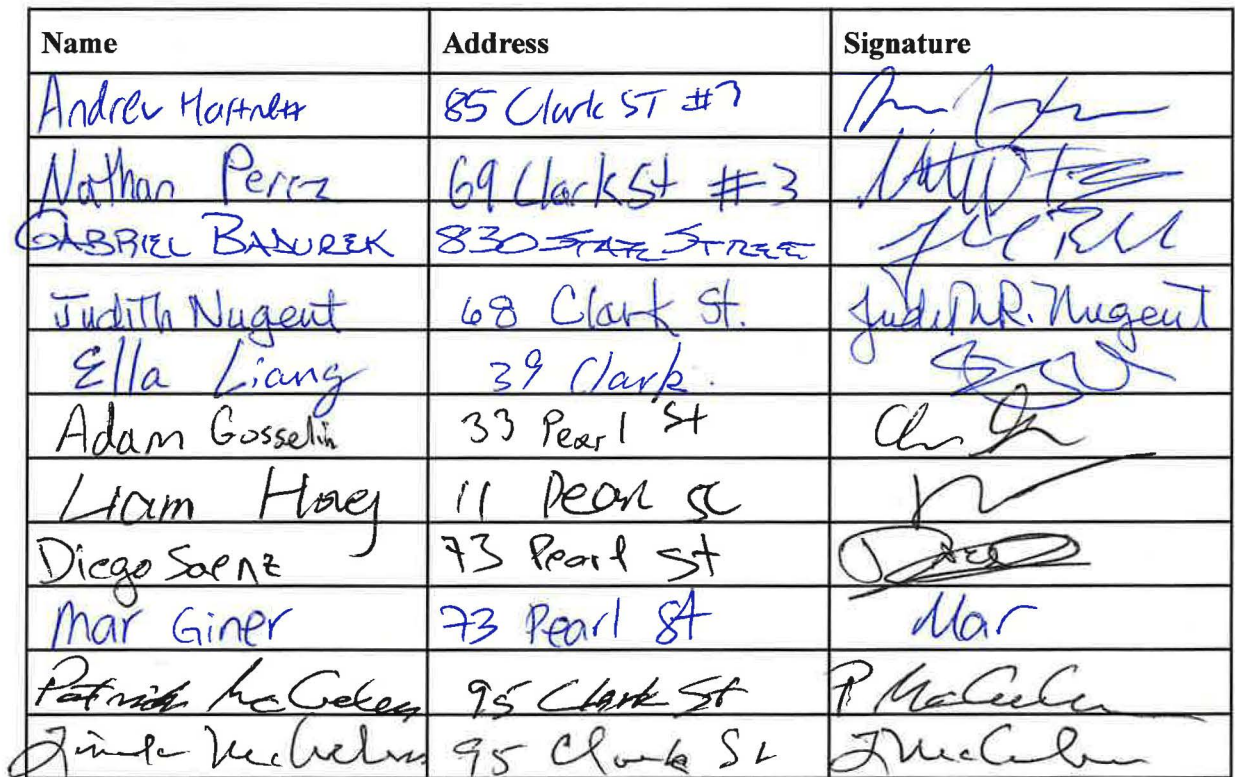 Name Address Signature
Andrew Hartnett 85 Clark ST #7
Nathan Perez 69 Clark St #3
GABRIEL BADUREK 830 STATE STREET
Judith Nugent 68 Clark St. Judith R. Nugent
Ella Liang 39 Clark.
Adam Gosselin 33 Pearl St
Liam Hoey 11 Pearl St
Diego Saenz 73 Pearl St
Mar Giner 73 Pearl St Mar
Patrick 95 Clark St P
95 Clark St